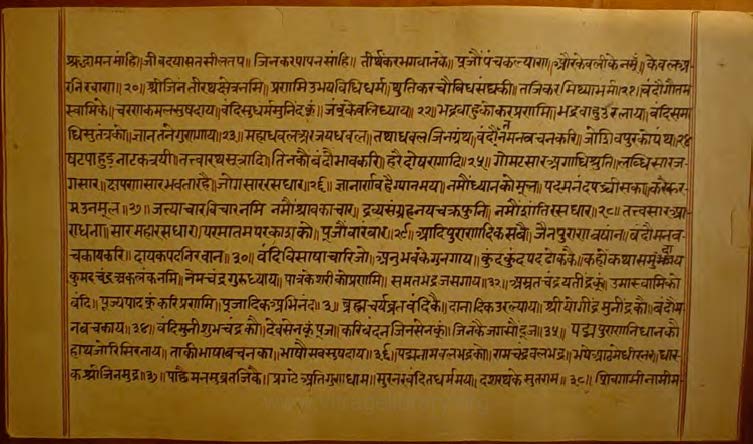 श्रद्धामनमांहि॥जीवदयासतसीलतप॥जिनकरपापनसांहि॥तीर्थंकरभगवानके॥पूजौंपंचकल्याण॥औरकेवलीकेनमूं॥केवलअ
रनिरवाण॥२०॥श्रीजिनतीरथक्षेत्रनमि॥प्रणमिउभयविधिधर्म॥थुतिकरचौविधसंघकी॥तजिकरमिथ्याभर्म॥२१॥वंदौगौतम
स्वामिके॥चरणकमलसुषदाय॥वंदिसुधर्ममुनिंदकूं॥जंबूकेवलिध्याय॥२२॥भद्रबाहुकोंकरप्रणमि॥भद्रबाहुउरलाय॥वंदिसमा
धिसुतंत्रकौ॥ज्ञानतनेगुणगाय॥२३॥महाधवलअरजयधवल॥तथाधवलजिनग्रंथ॥वंदौमनवचनकरि॥जोशिवपुरकोपंथ॥२४
षटपाहुडनाटकत्रयी॥तत्त्वारथसूत्रादि॥तिनकौवंदौभावकरि॥हरैदोषरागादि॥२५॥गोमटसारअगाधिश्रुति॥लब्धिसारज
गसार॥क्षपणासारभवतारहै॥जोगसाररसधार॥२६॥ज्ञानार्णवहैग्यानमय॥नमौंध्यानकोमूल॥पदमनंदपच्चीसका॥करैकर
मउनमूल॥२७॥जत्याचारविचारनमि॥नमौंश्रावकाचार॥द्रव्यसंग्रहनयचक्रफुनि॥नमौंशांतिरसधार॥२८॥तत्त्वसारआ
राधना॥सारमहारसधार॥परमातमपरकाशकौ॥पूजौंवारंवार॥२९॥आदिपुराणादिकसबै॥जैनपुराणवषान॥वंदौमनव
चकायकरि॥दायकपदनिरवान॥३०॥वंदिविसाषाचारिजो॥अनुभवकेगुनगाय॥कुंदकुंदपदढोकदे॥कहौकथासमुझाय॥
कुमदचंद्रअकलंकनमि॥नेमचंद्रगुरुध्याय॥पात्रकेशरीकोप्रणमि॥समतभद्रजसगाय॥३२॥अमृतचंद्रयतींद्रकूं॥उमास्वामिकों
वंदि॥पूज्यपादकूंकरिप्रणमि॥पूजादिकअभिनंद॥३॥ब्रह्मचर्यव्रतवंदिकै॥दानादिकउरल्याय॥श्रीयोगींद्रमुनींद्रकौ॥वंदौम
नवचकाय॥३४॥वंदिमुनीशुभचंद्रकौ॥देवसेनकूंपूज॥करिवंदनजिनसेनकूं॥जिनकेजगमौंदूज॥३५॥पद्मपुराणनिधानकौ
हाथजोरिसिरनाय॥ताकीभाषावचनका॥भाषौंसबसुषदाय॥३६॥पद्मनामबलभद्रकौ॥रामचंद्रबलभद्र॥भयेआठमेधीरनर॥धार
कश्रीजिनमुद्र॥३७॥पाछैमनसुव्रतजिकै॥प्रगटेअतिगुणधाम॥सुरनरवंदितधर्ममय॥दशरथकेसुतराम॥३८॥शिवगामीनामीम